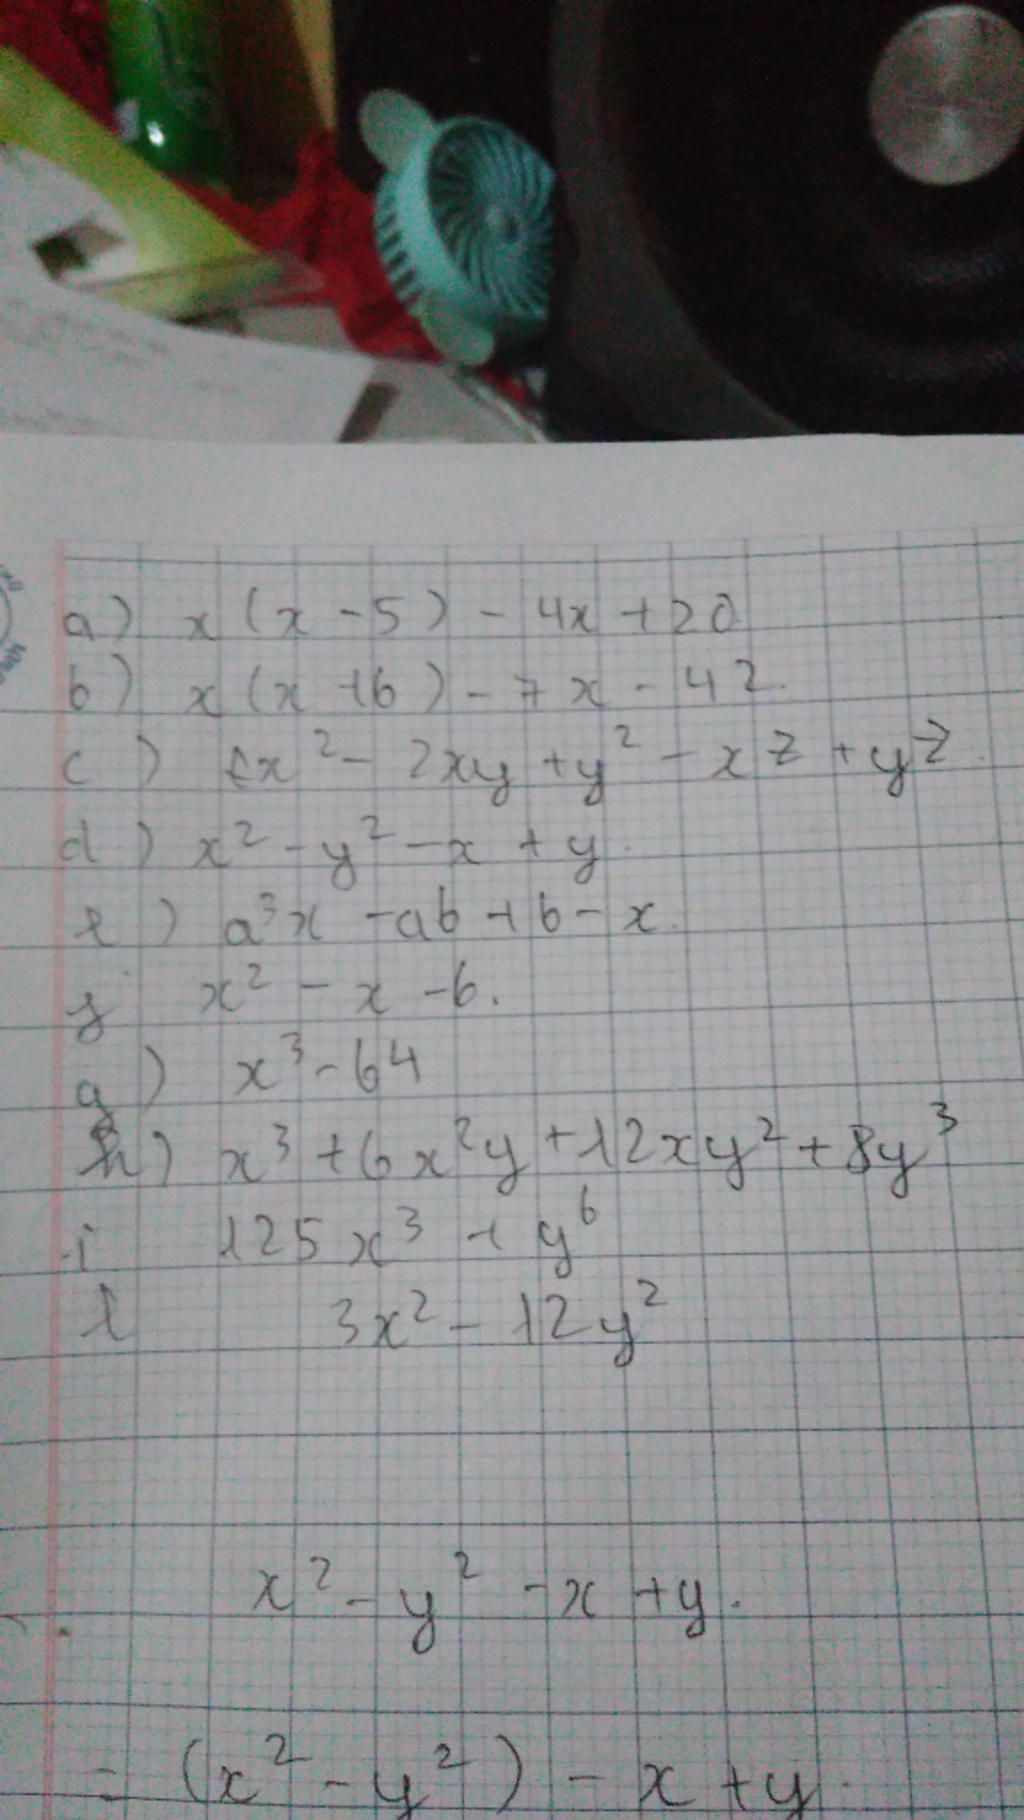 a) x (x - 5) - 4x + 20
b) x (x + 6) - 7x - 42.
c) x² - 2xy + y² - xz + yz.
d) x² - y² - x + y.
e) a³x - ab + b - x.
f x² - x - 6.
g) x³ - 64
h) x³ + 6x²y + 12xy² + 8y³
i 125x³ + y⁶
l 3x² - 12y²
x² - y² - x + y.
= (x² - y²) - x + y.